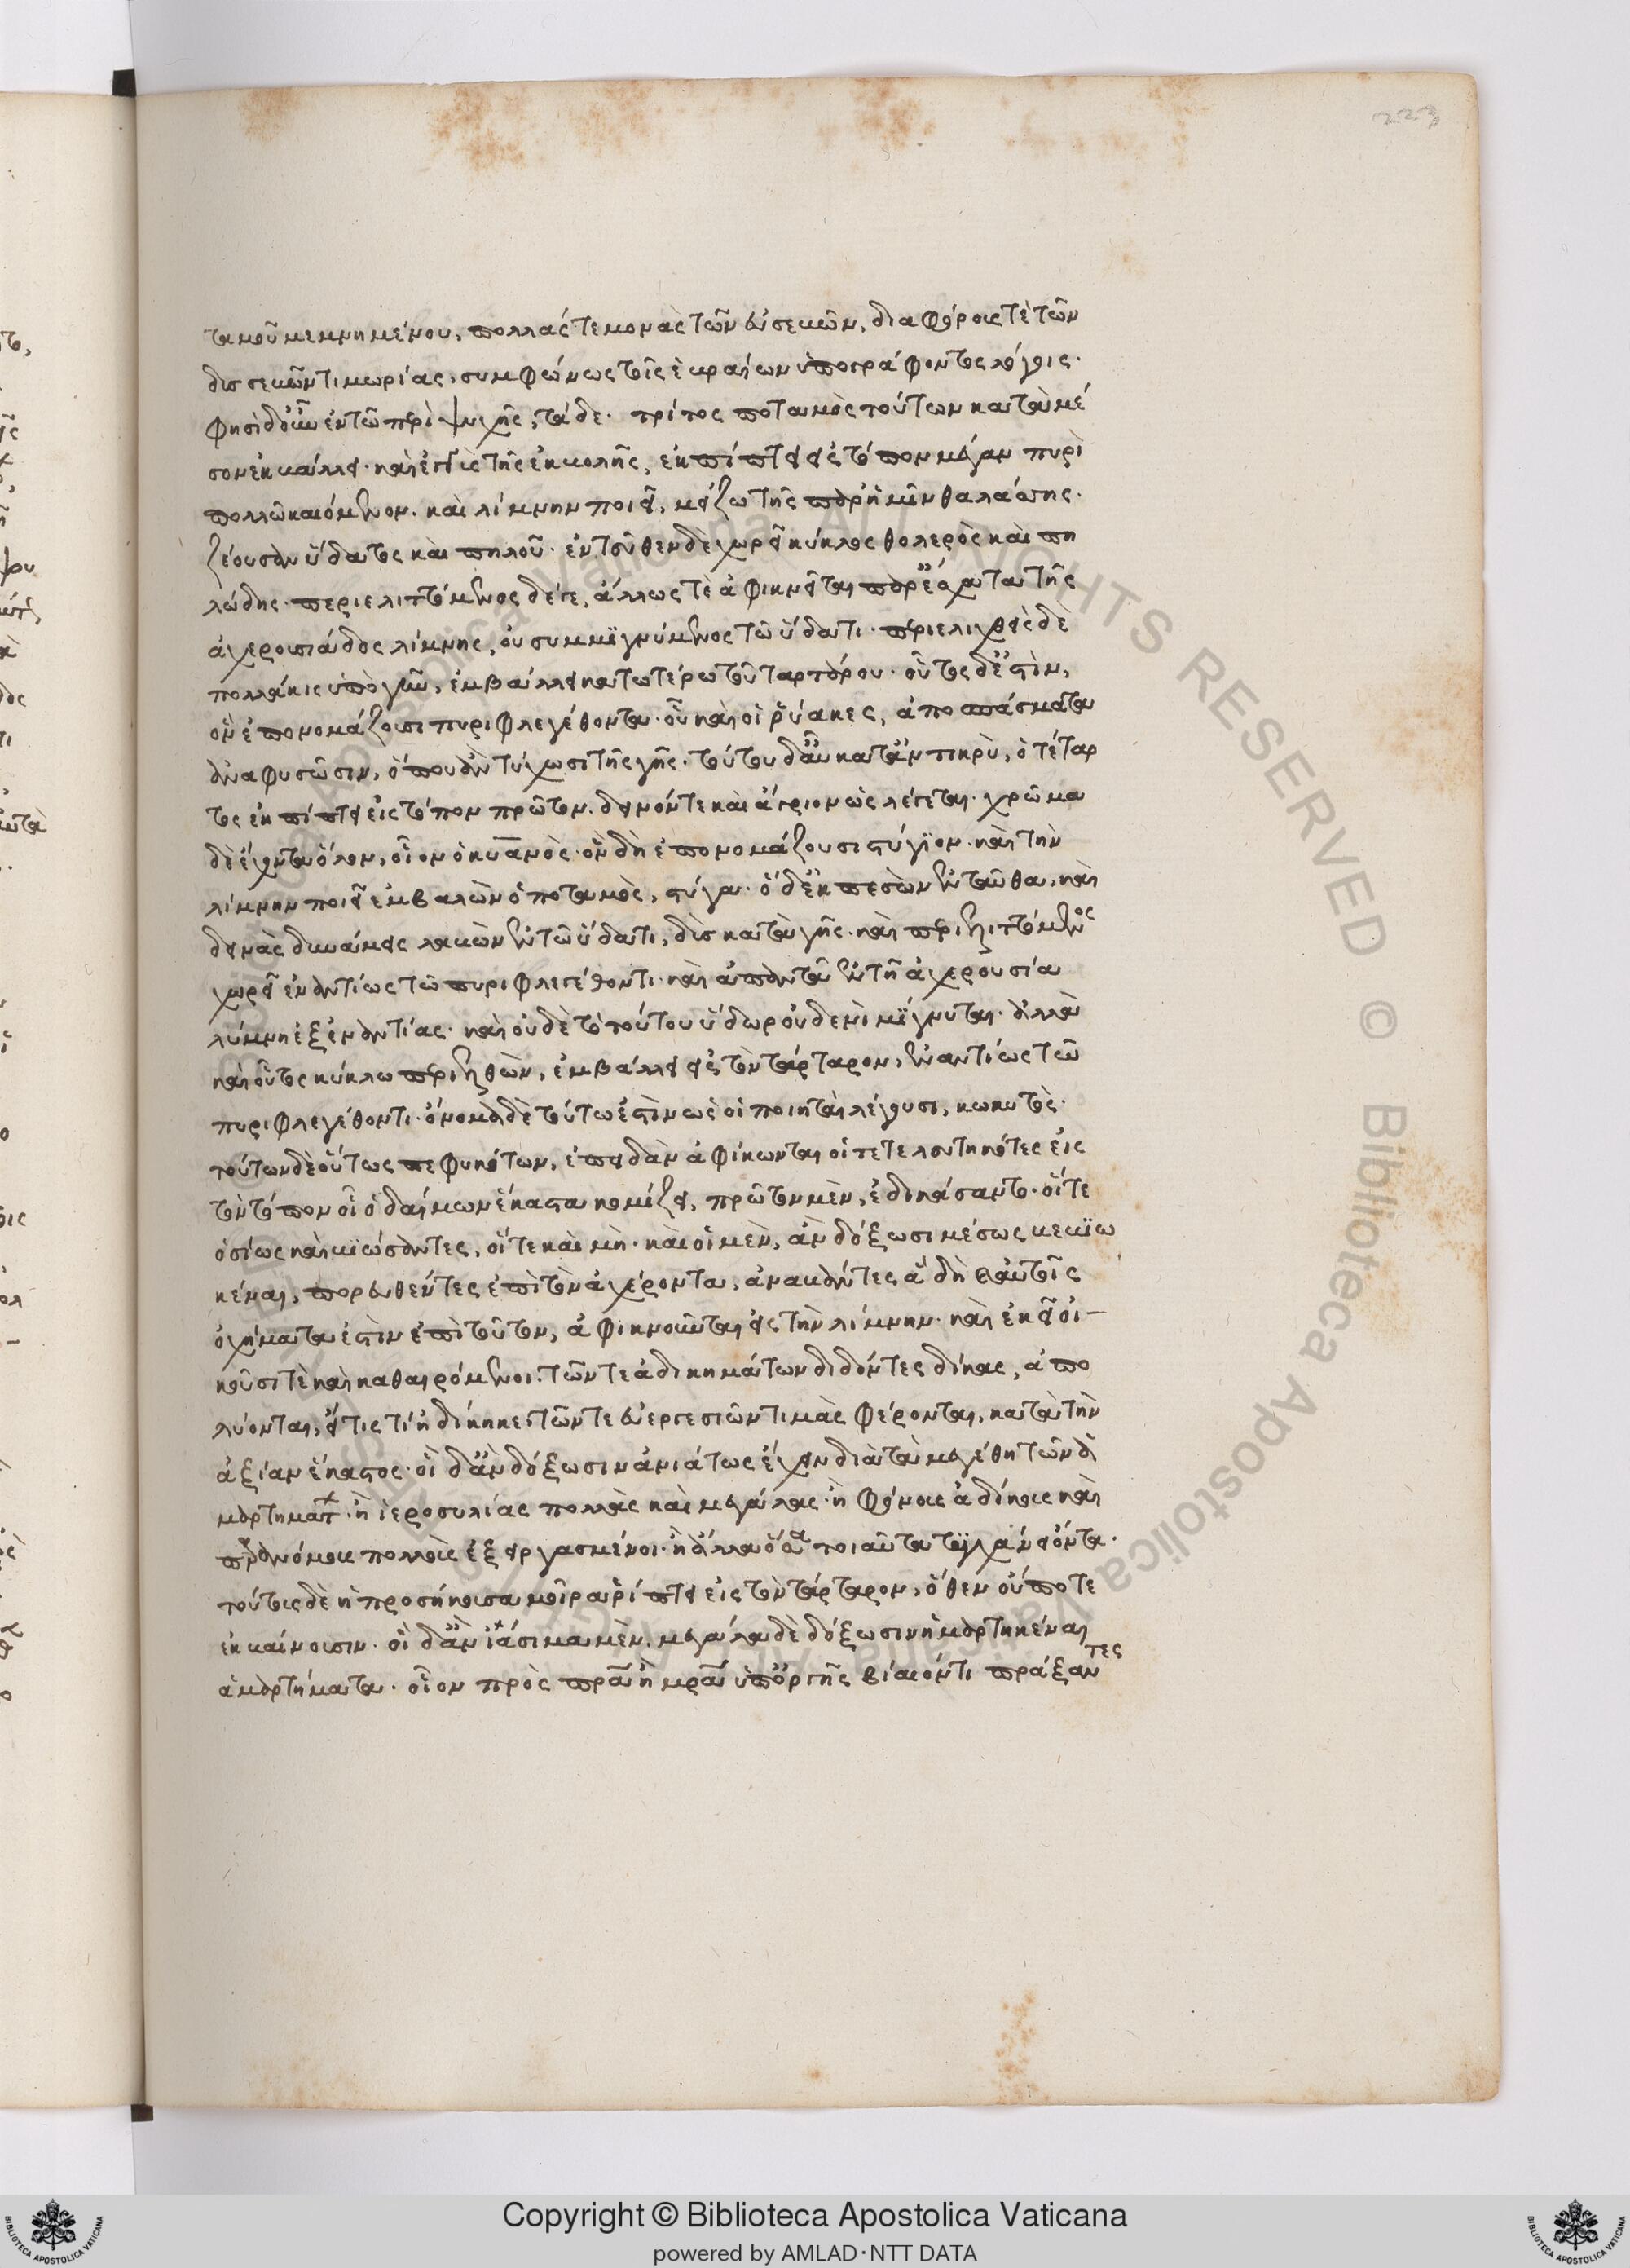 τα μοῦ μεμνημένου, πολλάς τε μονὰς τῶν εὐσεβῶν, διαφόρους τὲ τῶν
δυσσεβῶν τιμωρίας, συμφώνως τοῖς ἑβραίων ὑπογράφοντος λόγοις.
φησὶ δ' οὖν ἐν τῶ περὶ ψυχῆς, τάδε. τρίτος ποταμὸς τούτων κατὰ μέ
σον ἐκβάλλει. καὶ ἐγγὺς τῆς ἐκβολῆς, ἐκπίπτει εἰς τόπον μέγαν πυρὶ
πολλῶ καιόμενον. καὶ λίμνην ποιεῖ, μείζω τῆς παρ' ἡμῖν θαλάσσης.
ζέουσαν ὕδατος καὶ πηλοῦ. ἐντεῦθεν δὲ χωρεῖ κύκλος θολερὸς καὶ πη
λώδης. περιελιττόμενος δέ γε, ἄλλως τὲ ἀφικνεῖται παρ' ἔσχατα τῆς
ἀχερουσιάδος λίμνης, οὐ συμμιγνύμενος τῶ ὕδατι. περιελιχθεὶς δὲ
πολλάκις ὑπὸ γῆν, ἐμβάλλει κατωτέρω τοῦ ταρτάρου. οὗτος δ' ἐστὶν,
ὃν ἐπονομάζουσι πυριφλεγέθοντα. οὗ καὶ οἱ ῥύακες, ἀποσπάσματα
ἀναφυσῶσιν, ὅπου ἂν τύχωσι τῆς γῆς. τούτου δ' αὖ καταντικρὺ, ὁ τέταρ
τος ἐκπίπτει εἰς τόπον πρῶτον. δεινόν τε καὶ ἄγριον ὡς λέγεται. χρῶμα
δὲ ἔχοντα ὅλον, οἷον ὁ κυανὸς. ὃν δὴ ἐπονομάζουσι στύγιον. καὶ τὴν
λίμνην ποιεῖ ἐμβαλὼν ὁ ποταμὸς, στύγα. ὁ δ' ἐκπεσὼν ἐνταῦθα, καὶ
δεινὰς δυνάμεις λαβὼν ἐν τῶ ὕδατι, δὺς κατὰ γῆς. καὶ περιελιττόμενος
χωρεῖ ἐναντίως τῶ πυριφλεγέθοντι. καὶ ἀπαντᾶ ἐν τῆ ἀχερουσία
λίμνη ἐξεναντίας. καὶ οὐδὲ τὸ τούτου ὕδωρ οὐδενὶ μίγνυται. ἀλλὰ
καὶ οὗτος κύκλω περιελθὼν, ἐμβάλλει εἰς τὸν τάρταρον, ἐναντίως τῶ
πυριφλεγέθοντι. ὄνομα δὲ τούτω ἐστὶν ὡς οἱ ποιηταὶ λέγουσι, κωκυτὸς.
τούτων δὲ οὕτως πεφυκότων, ἐπειδὰν ἀφίκωνται οἱ τετελευτηκότες εἰς
τὸν τόπον οἷ ὁ δαίμων ἕκαστα κομίζει, πρῶτον μὲν, ἐδικάσαντο. οἵ τε
ὁσίως καὶ βιώσαντες, οἵ τε καὶ μὴ. καὶ οἱ μὲν, ἂν δόξωσι μέσως βεβιω
κέναι, πορευθέντες ἐπὶ τὸν ἀχέροντα, ἀναβάντες ἃ δὴ αὐτοῖς
ὀχήματα ἐστὶν ἐπὶ τοῦτον, ἀφικνοῦνται εἰς τὴν λίμνην. καὶ ἐκεῖ οἰ-
κοῦσι τὲ καὶ καθαιρόμενοι. τῶν τε ἀδικημάτων διδόντες δίκας, ἀπο
λύονται, εἴ τις τί ἠδίκηκε. τῶν τε εὐεργεσιῶν τιμὰς φέρονται, κατὰ τὴν
ἀξίαν ἕκαστος. οἳ δ' ἂν δόξωσιν ἀνιάτως ἔχειν διὰ τὰ μεγέθη τῶν ἁ
μαρτημάτων. ἢ ἱεροσυλίας πολλὰς καὶ μεγάλας. ἢ φόνους ἀδίκους καὶ
παρανόμους πολλοὺς ἐξειργασμένοι. ἢ ἄλλα ὅσα τοιαῦτα τυγχάνει ὄντα.
τούτοις δὲ ἡ προσήκουσα μοῖρα ῥίπτει εἰς τὸν τάρταρον, ὅθεν οὔποτε
ἐκβαίνουσιν. οἳ δ' ἂν ἰάσιμα μὲν, μεγάλα δὲ δόξωσιν ἡμαρτηκέναι
ἁμαρτήματα. οἷον πρὸς πατέρα ἢ μητέρα ὑπ' ὀργῆς βίαιόν τι πράξαντες